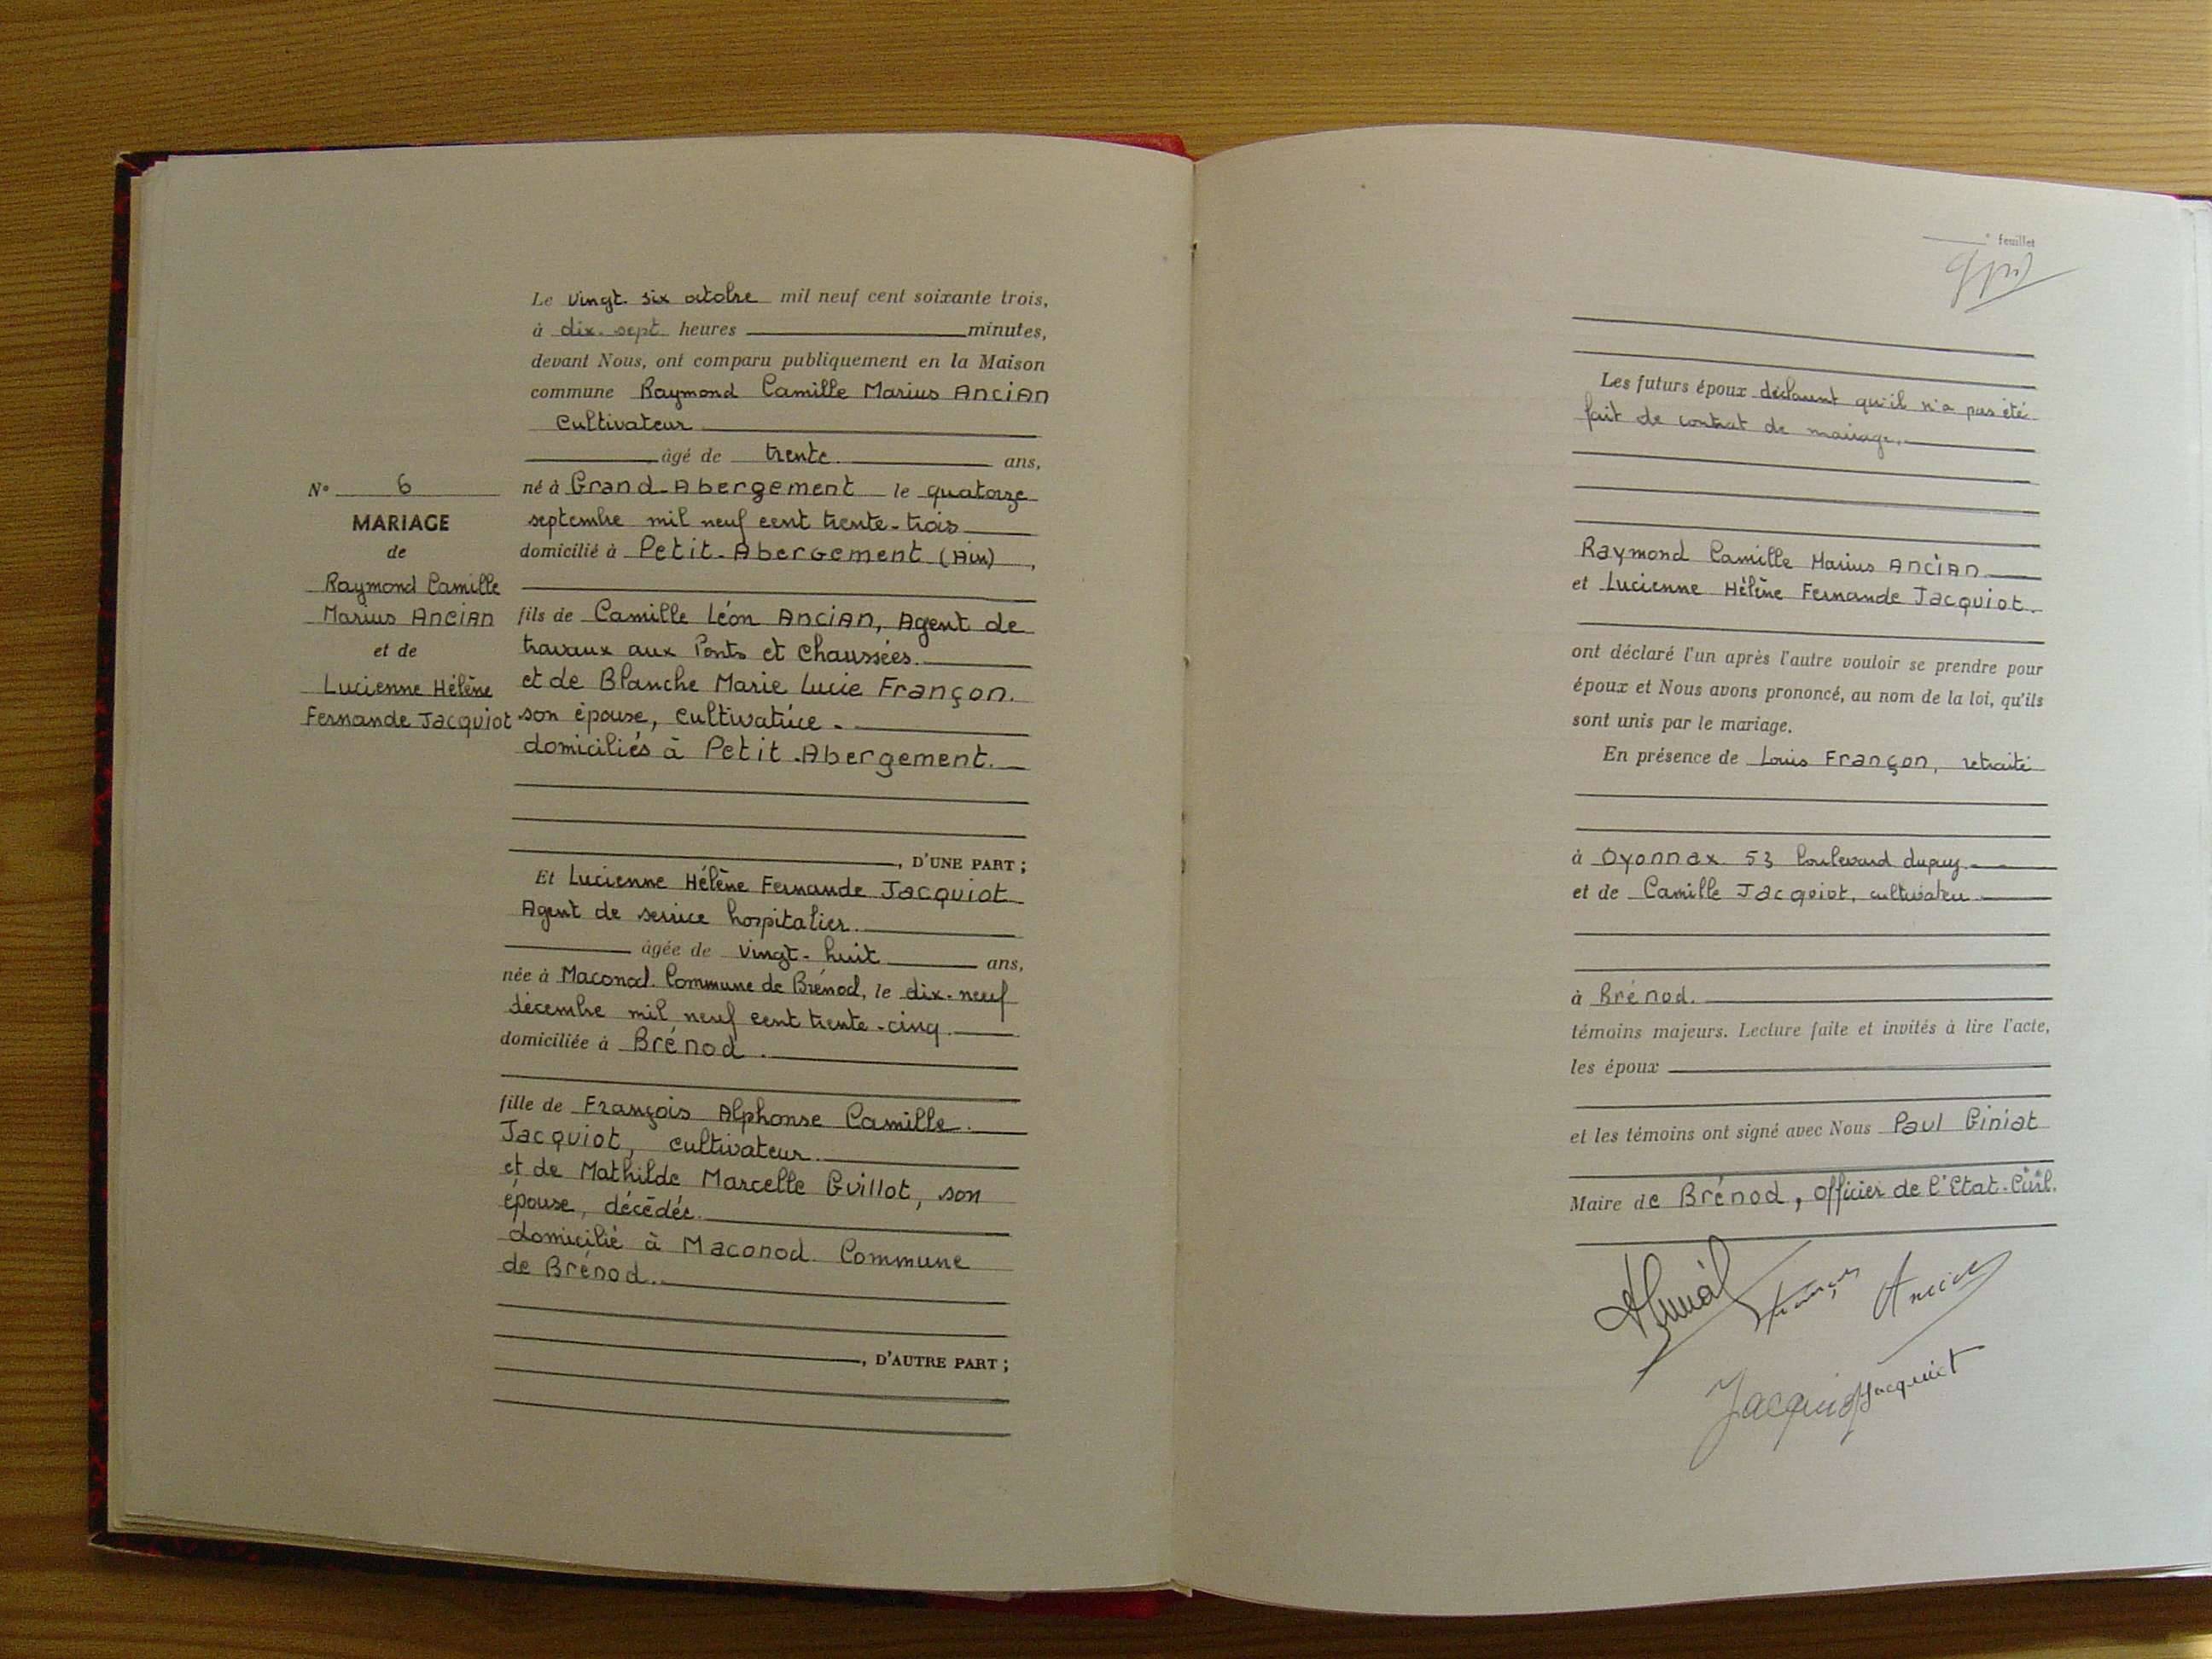 Le vingt six octobre mil neuf cent soixante trois,
à dix-sept heures minutes,
devant Nous, ont comparu publiquement en la Maison
commune Raymond Camille Marius ANCIAN
cultivateur
âgé de trente ans,
né à Grand-Abergement le quatorze
septembre mil neuf cent trente-trois
domicilié à Petit-Abergement (Ain),
fils de Camille Léon ANCIAN, Agent de
travaux aux Ponts et Chaussées.
et de Blanche Marie Lucie Françon.
son épouse, cultivatrice -
domiciliés à Petit-Abergement.
, D'UNE PART ;
Et Lucienne Hélène Fernande Jacquiot
Agent de service hospitalier.
âgée de vingt-huit ans,
née à Maconod. Commune de Brénod, le dix-neuf
décembre mil neuf cent trente-cinq.
domiciliée à Brénod.
fille de François Alphonse Camille.
Jacquiot, cultivateur.
et de Mathilde Marcelle Guillot, son
épouse, décédée.
domicilié à Maconod. Commune
de Brénod.
, D'AUTRE PART ;
N° 6
MARIAGE
de
Raymond Camille
Marius ANCIAN
et de
Lucienne Hélène
Fernande Jacquiot
° feuillet
Les futurs époux déclarent qu'il n'a pas été
fait de contrat de mariage.
Raymond Camille Marius ANCIAN
et Lucienne Hélène Fernande Jacquiot.
ont déclaré l'un après l'autre vouloir se prendre pour
époux et Nous avons prononcé, au nom de la loi, qu'ils
sont unis par le mariage.
En présence de Louis Françon, retraité
à Oyonnax. 53 boulevard dupuy.
et de Camille Jacquiot, cultivateur
à Brénod.
témoins majeurs. Lecture faite et invités à lire l'acte,
les époux
et les témoins ont signé avec Nous Paul Giniat
Maire de Brénod, officier de l'Etat-Civil.
Françon Ancian
Jacquiot Jacquiot